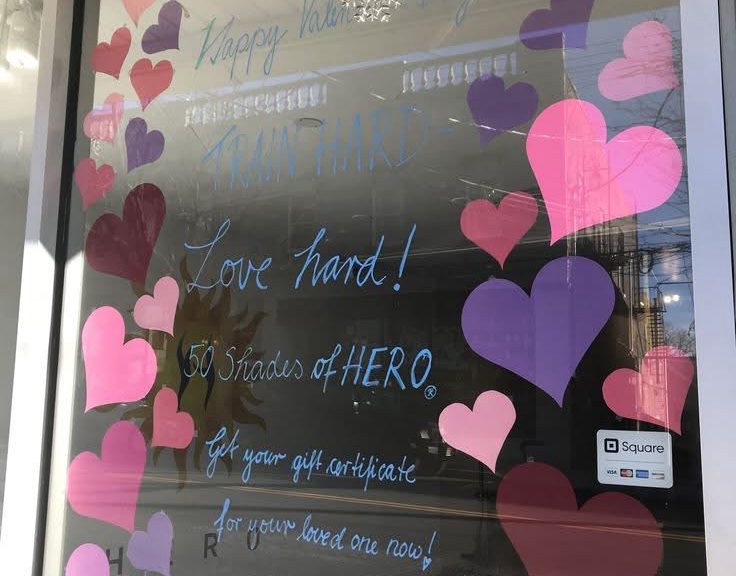 Happy Valen
TRAIN HARD -
Love hard!
50 Shades of HERO®
Get your gift certificate
for your loved one now!
HERO
Square
VISA